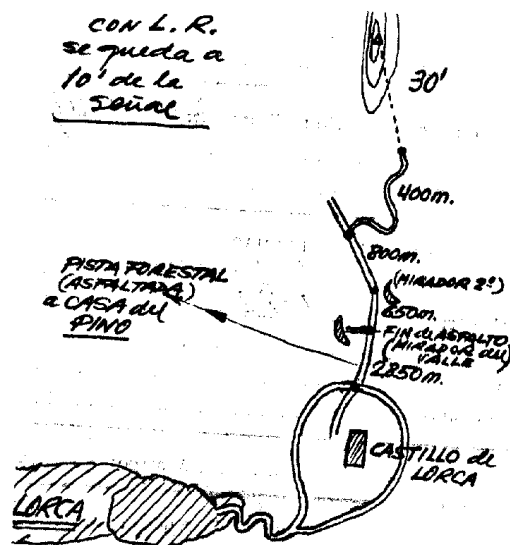 CON L. R.
se queda a
10' de la
señal
30'
400m.
800m.
(MIRADOR 2º)
650m.
FIN de ASFALTO
(MIRADOR del
VALLE
2850m.
PISTA FORESTAL
(ASFALTADA)
a CASA del
PINO
CASTILLO de
LORCA
LORCA